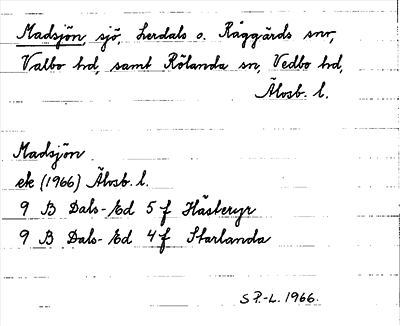 Madsjön, sjö, Lerdals o. Råggärds snr,
Valbo hd, samt Rölanda sn, Vedbo hd,
Älvsb. l.
Madsjön
ek (1966) Älvsb. l.
9 B Dals-Ed 5 f Hästeryr
9 B Dals-Ed 4 f Starlanda
S P.-L. 1966.